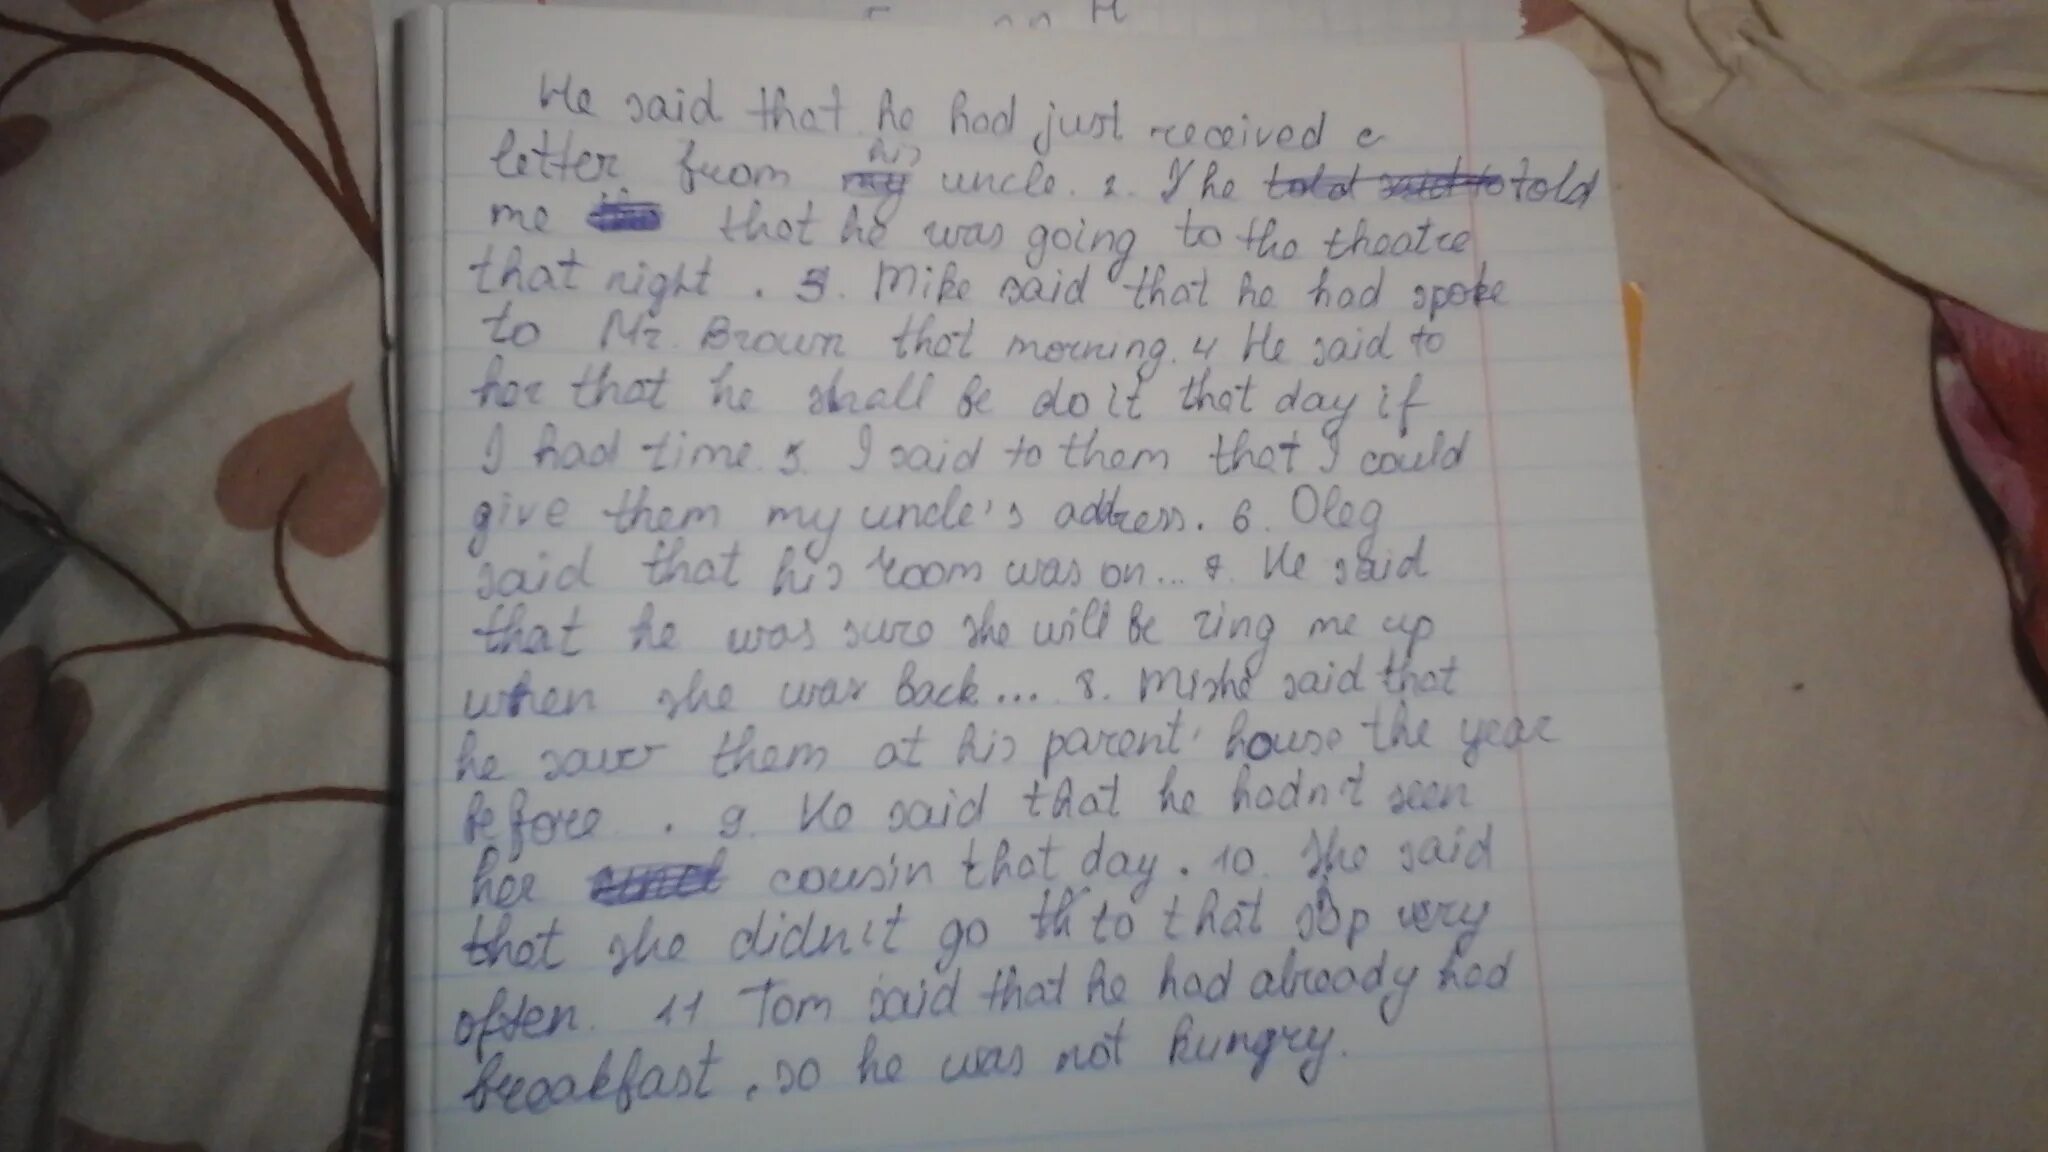 He said that he had just received a
letter from his uncle. 2. The told said to told
me that he was going to the theatre
that night. 3. Mike said that he had spoke
to Mr. Brown that morning. 4 He said to
her that he shall be do it that day if
I had time. 5. I said to them that I could
give them my uncle's address. 6. Oleg
said that his room was on... 7. He said
that he was sure she will be ring me up
when she was back... 8. Misha said that
he saw them at his parent' house the year
before. 9. He said that he hadn't seen
her cousin that day. 10. She said
that she didn't go to that very
often. 11 Tom said that he had already had
breakfast, so he was not hungry.